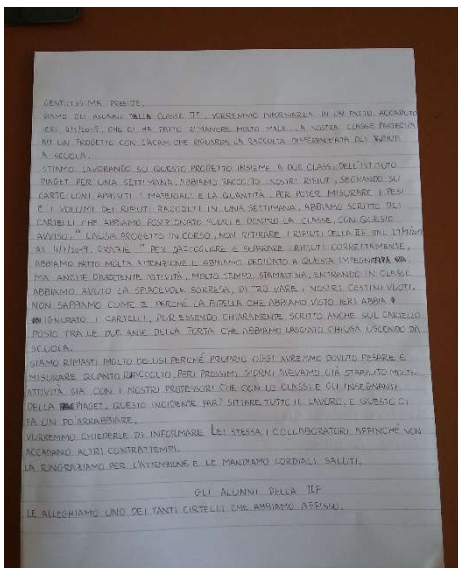 GENTILISSIMA PRESIDE,
SIAMO DEI ALUNNI DELLA CLASSE IIF. VORREMMO INFORMARLA DI UN FATTO ACCADUTO
IERI, CHE CI HA FATTO RIMANERE MOLTO MALE. LA NOSTRA CLASSE PARTECIPA
AD UN PROGETTO CON L'ACAM CHE RIGUARDA LA RACCOLTA DIFFERENZIATA DEI RIFIUTI
A SCUOLA.
STIAMO LAVORANDO SU QUESTO PROGETTO INSIEME A DUE CLASSI DELL'ISTITUTO
PIAGET. PER UNA SETTIMANA ABBIAMO RACCOLTO I NOSTRI RIFIUTI, SEGNANDO SU
CARTELLONI APPOSITI I MATERIALI E LA QUANTITÀ, PER POTER MISURARE I PESI
E I VOLUMI DEI RIFIUTI RACCOLTI IN UNA SETTIMANA. ABBIAMO SCRITTO DEI
CARTELLI CHE ABBIAMO POSIZIONATO FUORI E DENTRO LA CLASSE, CON QUESTO
AVVISO: "CAUSA PROGETTO IN CORSO, NON RITIRARE I RIFIUTI DELLA IIF DAL
AL GRAZIE". PER RACCOGLIERE E SEPARARE I RIFIUTI CORRETTAMENTE,
ABBIAMO FATTO MOLTA ATTENZIONE E ABBIAMO DEDICATO A QUESTA IMPEGNATIVA
MA ANCHE DIVERTENTE ATTIVITÀ, MOLTO TEMPO. STAMATTINA, ENTRANDO IN CLASSE
ABBIAMO AVUTO LA SPIACEVOLE SORRESA, DI TROVARE I NOSTRI CESTINI VUOTI.
NON SAPPIAMO COME E PERCHÉ LA BIDELLA CHE ABBIAMO VISTO IERI ABBIA
IGNORATO I CARTELLI, PUR ESSENDO CHIARAMENTE SCRITTO ANCHE SUL CARTELLO
POSTO TRA LE DUE ANTE DELLA PORTA CHE ABBIAMO LASCIATO CHIUSA USCENDO DA
SCUOLA.
SIAMO RIMASTI MOLTO DELUSI PERCHÉ PROPRIO OGGI AVREMMO DOVUTO PESARE E
MISURARE QUANTO RACCOLTO. PER I PROSSIMI GIORNI AVEVAMO GIÀ STABILITO MOLTE
ATTIVITÀ SIA CON I NOSTRI PROFESSORI CHE CON LE CLASSI E GLI INSEGNANTI
DELLA PIAGET. QUESTO INCIDENTE FARÀ SLITTARE TUTTO IL LAVORO, E QUESTO CI
FA UN PO' ARRABBIARE.
VORREMMO CHIEDERLE DI INFORMARE LEI STESSA I COLLABORATORI AFFINCHÉ NON
ACCADANO ALTRI CONTRATTEMPI.
LA RINGRAZIAMO PER L'ATTENZIONE E LE MANDIAMO CORDIALI SALUTI.
GLI ALUNNI DELLA IIF
LE ALLEGHIAMO UNO DEI TANTI CARTELLI CHE ABBIAMO AFFISSO.